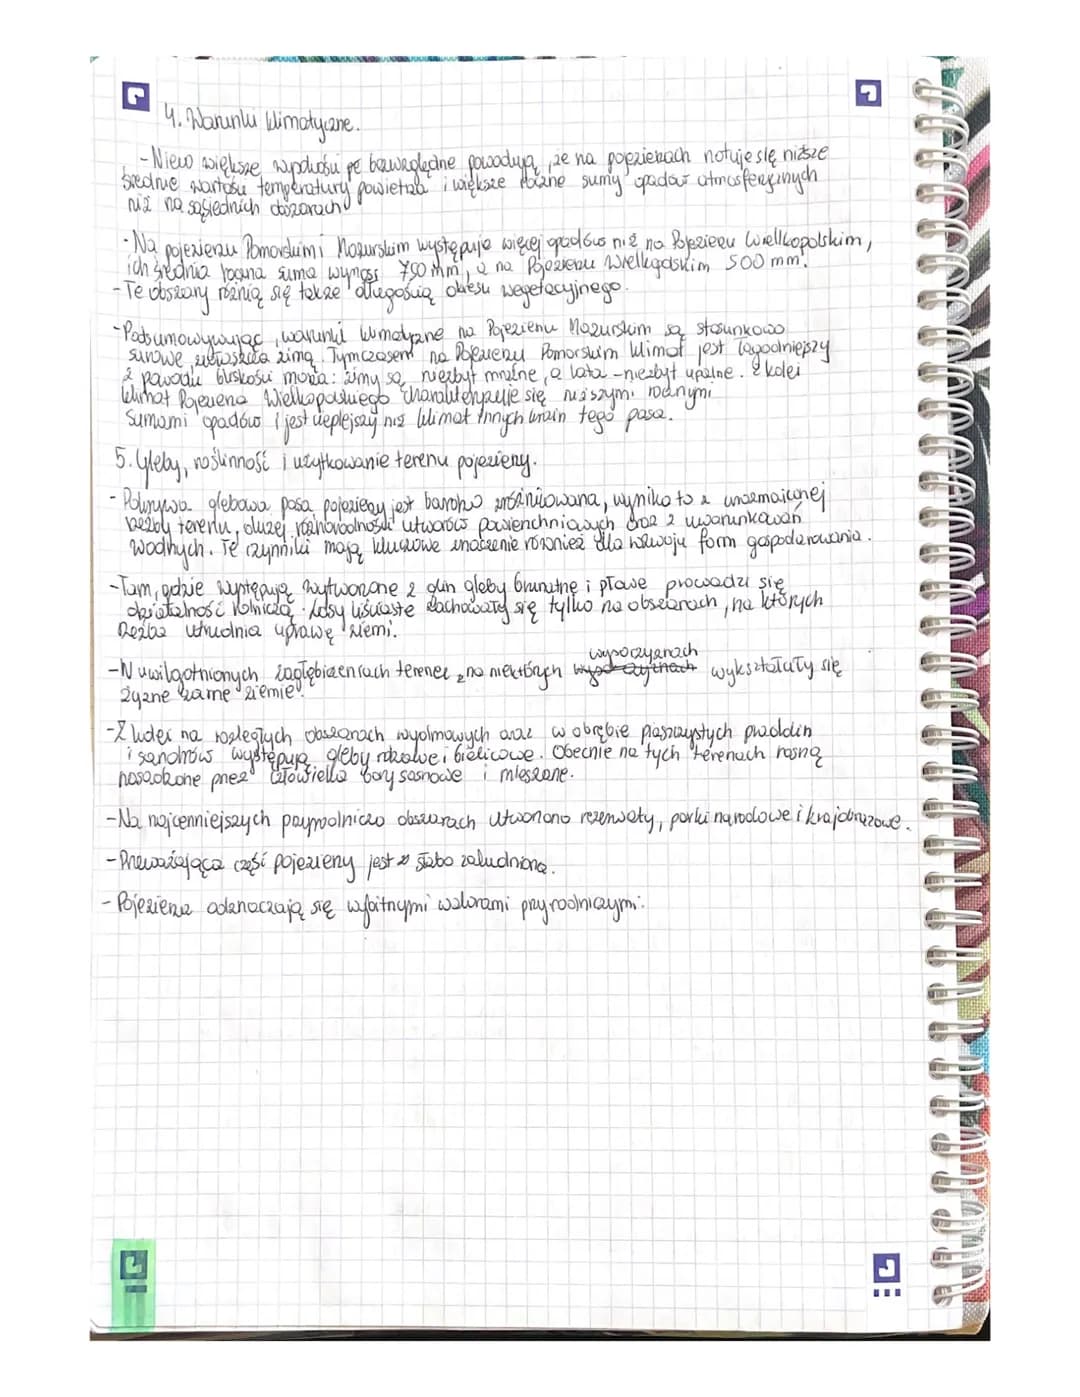 4. Warunki klimatyczne.
- Nieco większe wysokości bezwzględne powodują, że na pojezierzach notuje się niższe
średnie wartości temperatury powietrza i większe roczne sumy opadów atmosferycznych
niż na sąsiednich obszarach
- Na pojezierzu Pomorskim i Mazurskim występuje więcej opadów niż na Pojezierzu Wielkopolskim,
ich średnia roczna suma wynosi 750 mm, a na Pojezierzu Wielkopolskim 500 mm.
- Te obszary różnią się także długością okresu wegetacyjnego.
- Podsumowywując, warunki klimatyczne na Pojezierzu Mazurskim są stosunkowo
surowe, zwłaszcza zimą. Tymczasem na Pojezierzu Pomorskim klimat jest łagodniejszy
z powodu bliskości morza: zimy są niezbyt mroźne, a lata - niezbyt upalne. Z kolei
klimat Pojezierza Wielkopolskiego charakteryzuje się niższymi rocznymi
sumami opadów i jest cieplejszy niż klimat innych krain tego pasa.
5. Gleby, roślinność i użytkowanie terenu pojezierzy.
- Pokrywa glebowa pasa pojezierzy jest bardzo zróżnicowana, wynika to z urozmaiconej
rzeźby terenu, dużej różnorodności utworów powierzchniowych oraz z uwarunkowań
wodnych. Te czynniki mają kluczowe znaczenie również dla rozwoju form gospodarowania.
- Tam, gdzie występują wytworzone z glin gleby brunatne i płowe prowadzi się
działalność rolniczą. Lasy liściaste zachowały się tylko na obszarach, na których
rzeźba utrudnia uprawę ziemi.
wyporzyenach
- W uwilgotnionych zagłębieniach terenu, na niektórych wykształtuły się
żyzne czarne ziemie.
- Z kolei na rozległych obszarach wydmowych oraz w obrębie piaszczystych pradolin
i sandrów występują gleby rdzawe i bielicowe. Obecnie na tych terenach rosną
nasadzone przez człowieka bory sosnowe i mieszane.
- Na najcenniejszych przyrodniczo obszarach utworzono rezerwaty, parki narodowe i krajobrazowe.
- Przeważająca część pojezierzy jest słabo zaludniona.
- Pojezierza odznaczają się wybitnymi walorami przyrodniczymi.